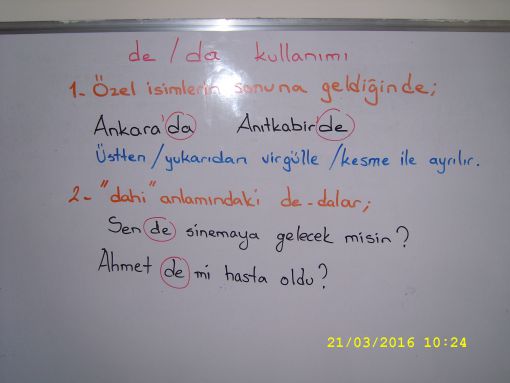 de / da kullanımı
1- Özel isimlerin sonuna geldiğinde;
Ankara'da Anıtkabir'de
Üstten / yukarıdan virgülle / kesme ile ayrılır.
2- "dahi" anlamındaki de-dalar;
Sen de sinemaya gelecek misin?
Ahmet de mi hasta oldu?
21/03/2016 10:24